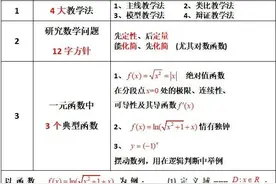 1
4 大教学法
1、主线教学法
2、类比教学法
3、模型教学法
4、辩证教学法
2
研究数学问题
12 字方针
先定性、后定量
能化简、先化简（尤其对数函数）
3
一元函数中
3 个典型函数
1、 f(x)=√x²=|x| 绝对值函数
在分段点x=0 处的极限、连续性、
可导性及其导函数 f'(x)
2、 f(x)=ln(√x²+1+x) 情有独钟
3、 y=(-1)ⁿ
摆动数列，用在逻辑判断中举例
以 函 数 f(x)=ln(√x²+1+x) 为 例 ： (1) 定 义 域 —— D:x∈R ，